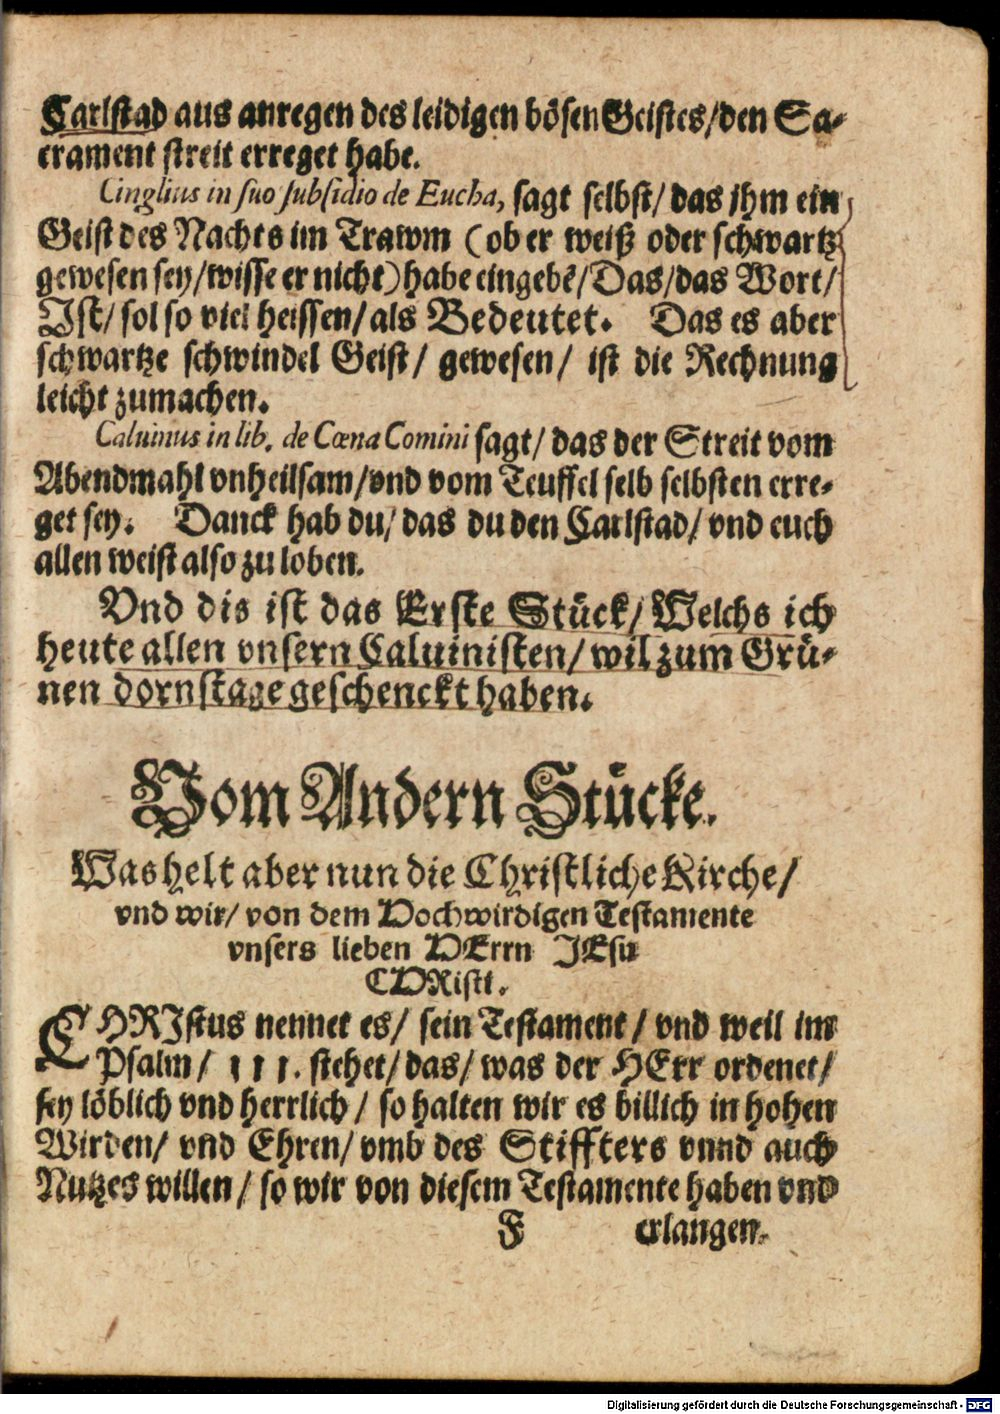 Carlstad aus anregen des leidigen bösen Geistes/den Sa-
crament streit erreget habe.
Cinglius in suo subsidio de Eucha, sagt selbst/ das ihm ein
Geist des Nachts im Trawm (ob er weiß oder schwartz
gewesen sey/wisse er nicht) habe eingebē/Das/das Wort/
Ist/ sol so viel heissen/als Bedeutet. Das es aber
schwartze schwindel Geist/ gewesen/ ist die Rechnung
leicht zumachen.
Caluinus in lib. de Cœna Comini sagt/ das der Streit vom
Abendmahl vnheilsam/vnd vom Teuffel selb selbsten erre-
get sey. Danck hab du/ das du den Carlstad/ vnd euch
allen weist also zu loben.
Vnd dis ist das Erste Stück/ Welchs ich
heute allen vnsern Caluinisten/ wil zum Grü-
nen dornstage geschenckt haben.
Vom Andern Stücke.
Was helt aber nun die Christliche Kirche/
vnd wir/ von dem Hochwirdigen Testamente
vnsers lieben HErrn JEsu
CHRisti.
CHRIstus nennet es/ sein Testament/ vnd weil im
Psalm/ 111. stehet/das/ was der HErr ordenet/
sey löblich vnd herrlich/ so halten wir es billich in hohen
Wirden/ vnd Ehren/ vmb des Stiffters vnnd auch
Nutzes willen/ so wir von diesem Testamente haben vnd
F erlangen.
Digitalisierung gefördert durch die Deutsche Forschungsgemeinschaft - DFG